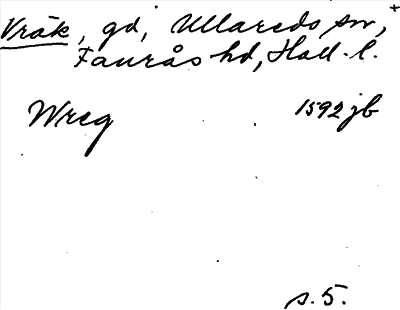 Vräk, gd, Ullareds sn, +
Faurås hd, Hall. l.
Wreg 1592 jb
s. 5.